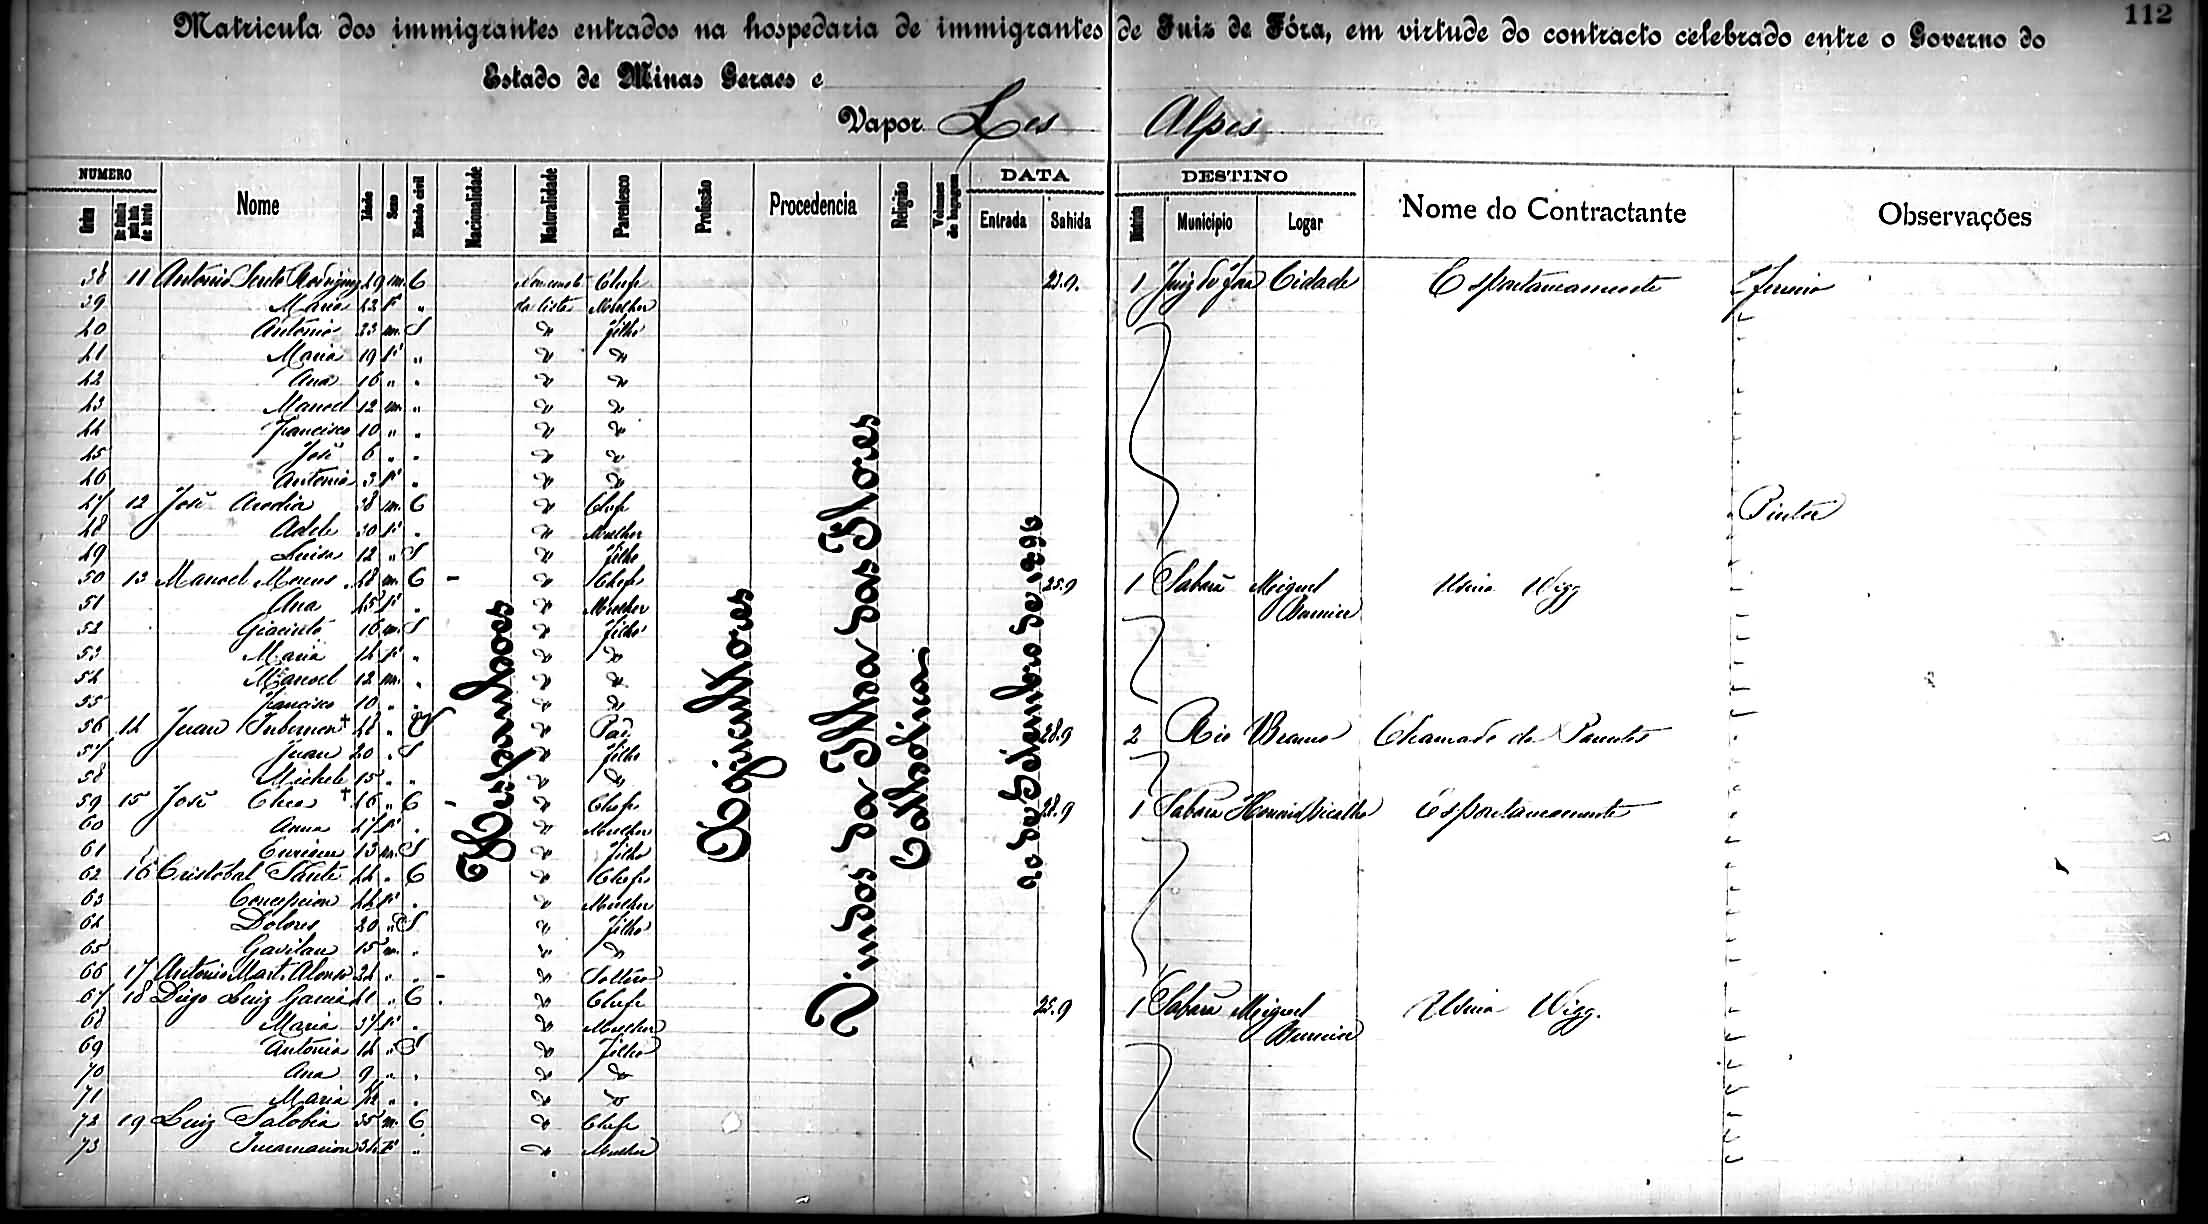 112
Matricula dos immigrantes entrados na hospedaria de immigrantes de Juiz de Fóra, em virtude do contracto celebrado entre o Governo do
Estado de Minas Geraes e
Vapor Les Alpes
NUMERO DATA DESTINO
Ordem Nome Idade Sexo Estado civil Nacionalidade Naturalidade Parentesco Profissão Procedencia Religião Volumes de bagagem Entrada Sahida Districto Municipio Logar Nome do Contractante Observações
38 11 Antonio Rodriguez 49 m. C Chefe 23.9. 1 Juiz de Fora Cidade Espontaneamente
39 Maria 42 f " da lista Mulher
40 Antonio 23 m. S " filho
41 Maria 19 f " " "
42 Ana 16 " " " "
43 Manoel 12 m. " " "
44 Francisco 10 " " " "
45 José 6 " " " "
46 Antonia 3 f " " "
47 12 José 38 m. C " Chefe Pintor
48 Adele 30 f " " Mulher
49 Luisa 12 " S " filho
50 13 Manoel 48 m. C - " Chefe 25.9 1 Sabará Miguel Burnier Usina Wigg
51 Ana 45 f " " Mulher
52 Giacinto 16 m. S " filho
53 Maria 14 f " " "
54 Manoel 12 m. " " "
55 Francisco 10 " " " "
56 14 Juan 48 " V " Pai 28.9 2 Rio Branco Chamado de Parentes
57 Juan 20 " S " filho
58 Michele 15 " " " "
59 15 José 46 " C - " Chefe 28.9 1 Sabará Honorio Bicalho Espontaneamente
60 Anna 47 f " " Mulher
61 Enrique 13 m. S " filho
62 16 Cristóbal 44 " C " Chefe
63 Concepcion 44 f " " Mulher
64 Dolores 20 " S " filho
65 Gavilan 15 m. " " "
66 17 Antonio Mart. Alonso 24 " " - " Solteiro
67 18 Diego Luiz Garcia 41 " C " Chefe 25.9 1 Sabará Miguel Burnier Usina Wigg.
68 Maria 37 f " " Mulher
69 Antonia 14 " S " filho
70 Ana 9 " " " "
71 Maria " " " "
72 19 Luiz 35 m. C " Chefe
73 Incarnacion 34 f " " Mulher
Hespanhoes
Agricultores
Vindos da Ilha das Flores
Catholica
20 de Setembro de 1896